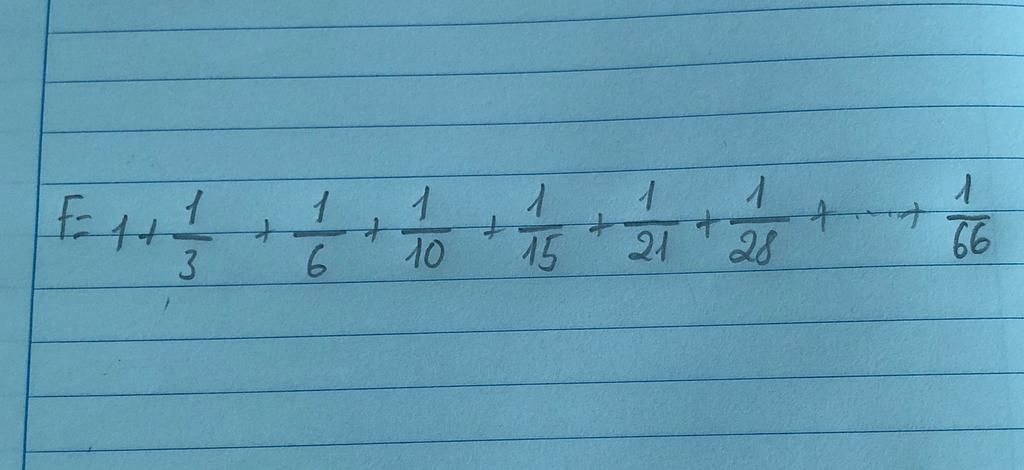 F= 1 + 1/3 + 1/6 + 1/10 + 1/15 + 1/21 + 1/28 + ... + 1/66